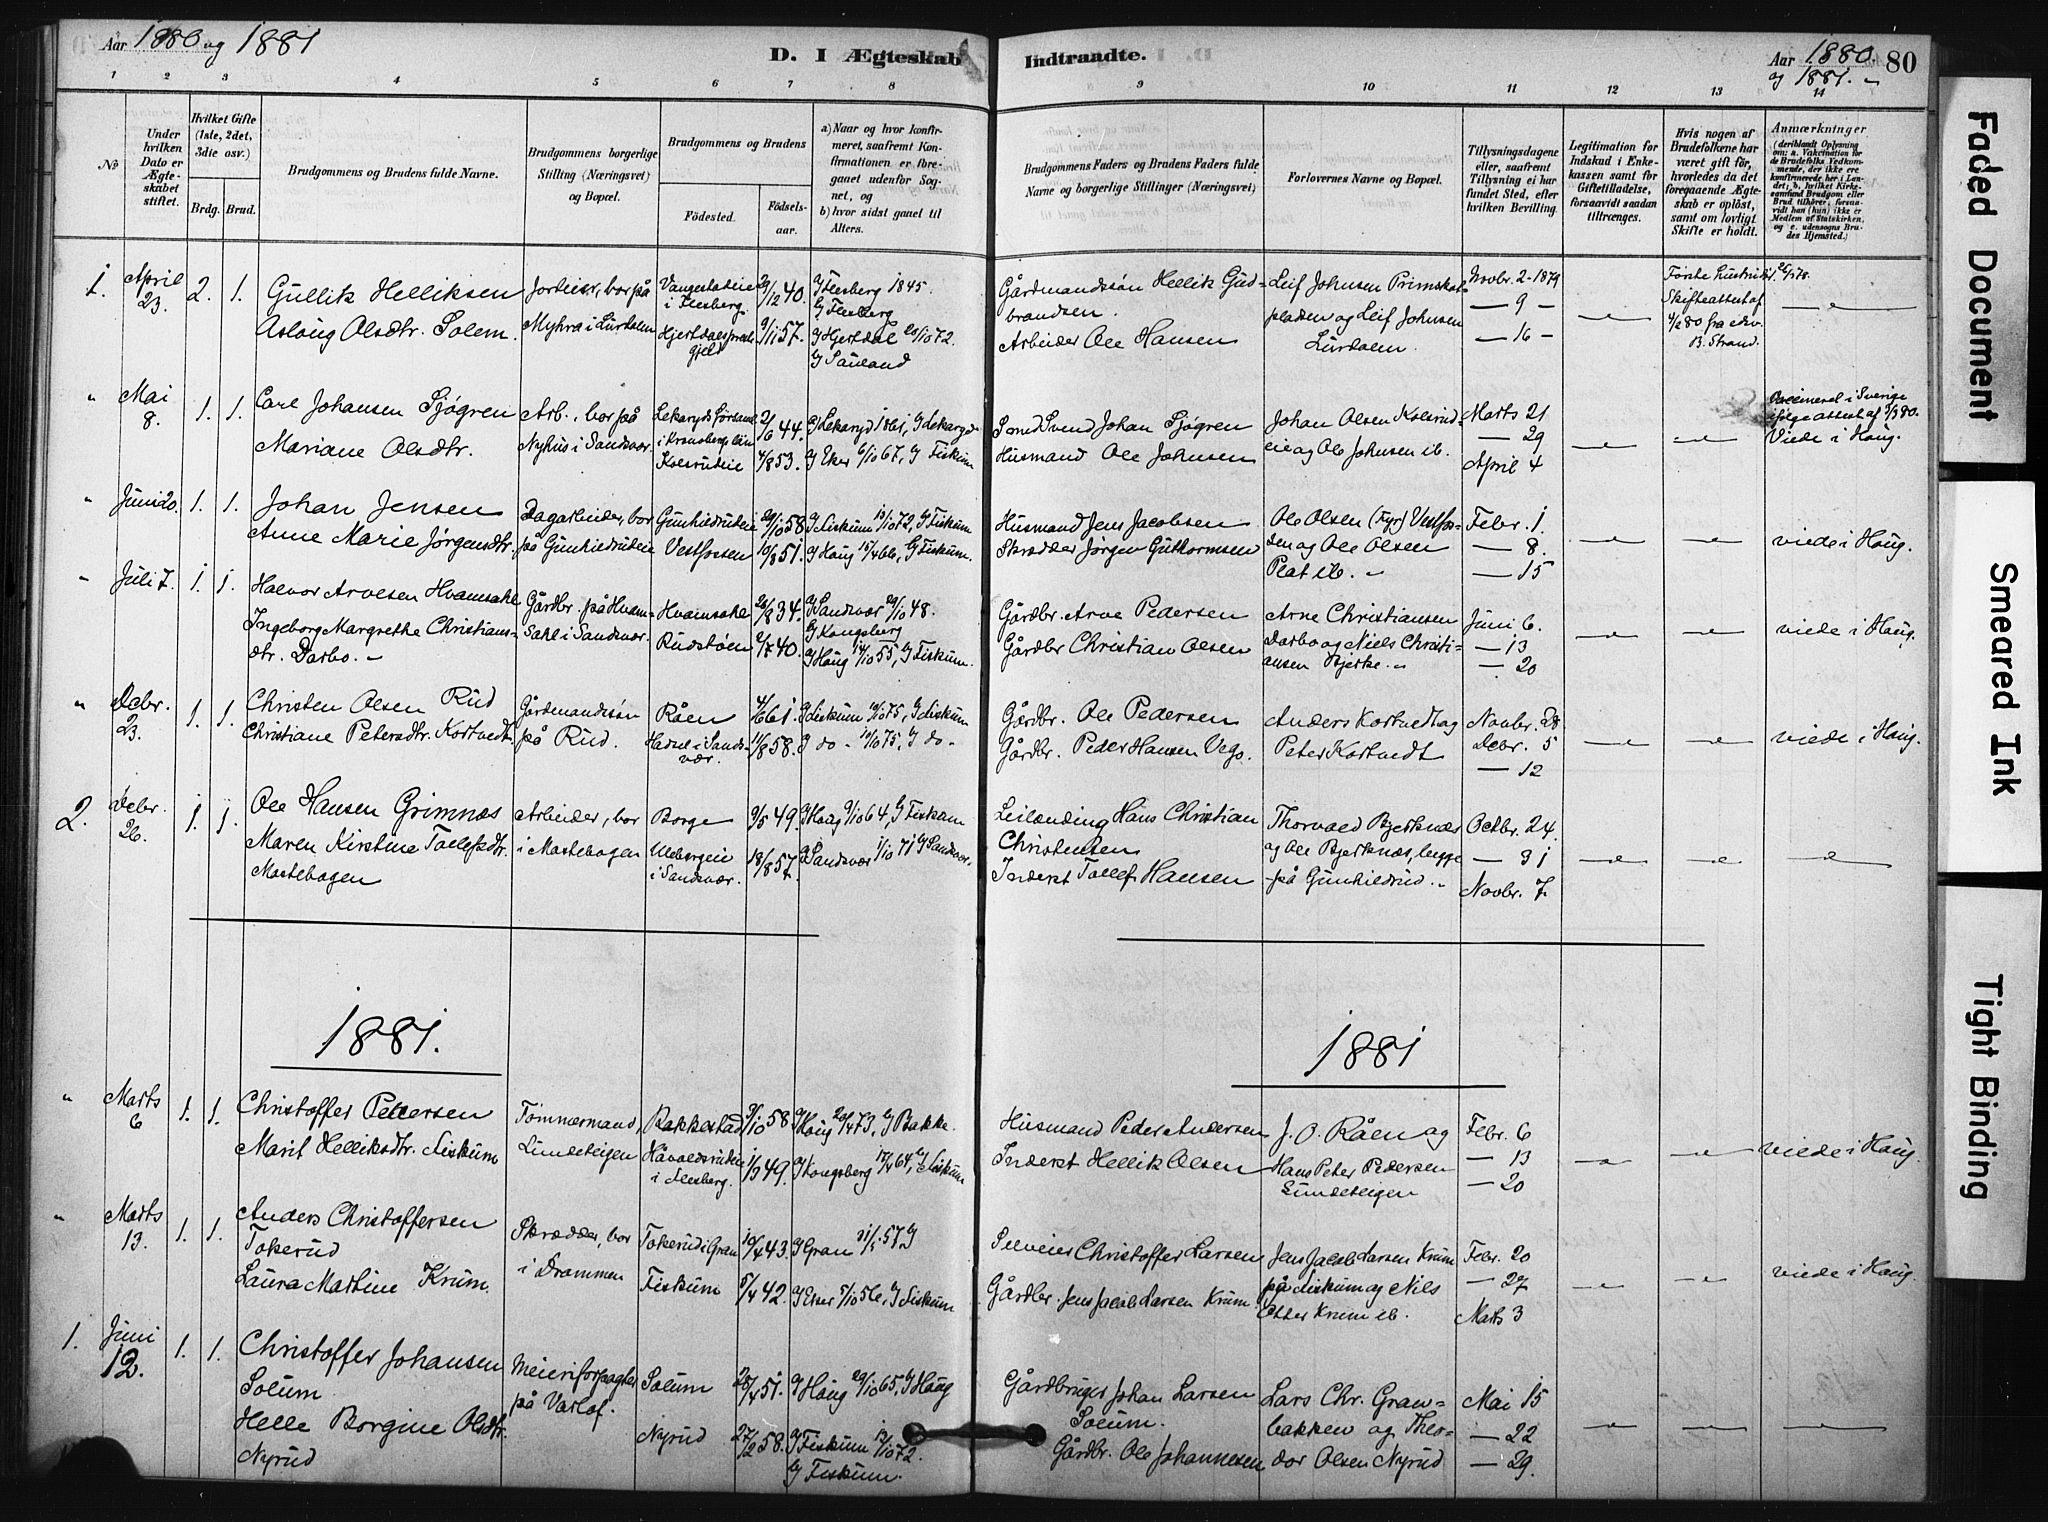 Aar 1880 og 1881
D. I Ægteskab Indtraadte.
Aar 1880. 80
og 1881.
1 2 3 4 5 6 7 8 9 10 11 12 13 14
No
Under hvilken Dato er Ægteskabet stiftet.
Hvilket Gifte (1ste, 2det, 3die osv.)
Brdg. Brud.
Brudgommens og Brudens fulde Navne.
Brudgommens borgerlige Stilling (Næringsvei) og Bopæl.
Brudgommens og Brudens
Fødested.
Fødselsaar.
a) Naar og hvor konfirmeret, saafremt Konfirmationen er foregaaet udenfor Sognet, og
b) hvor sidst gaaet til Alters.
Brudgommens Faders og Brudens Faders fulde Navne og borgerlige Stillinger (Næringsvei)
Forlovernes Navne og Bopæl.
Tillysningsdagene eller, saafremt Tillysning ei har fundet Sted, efter hvilken Bevilling.
Legitimation for Indskud i Enkekassen samt for Giftetilladelse, forsaavidt saadan tiltrænges.
Hvis nogen af Brudefolkene har været gift før, hvorledes da det foregaaende Ægteskab er opløst, samt om lovligt Skifte er holdt.
Anmærkninger
(deriblandt Oplysning om: a. Vaccination for de Brudefolks Vedkommende, der ikke ere konfirmerede her i Landet; b. hvilket Kirkesamfund Brudgom eller Brud tilhører, forsaavidt han (hun) ikke er Medlem af Statskirken, og c. udensogns Brudes Hjemsted.)
1. April 23. 2. 1.
Gullik Helliksen
Aslaug Olsdtr. Solem.
Jordeier, bor på
Myhra i Lurdalen
i Flesberg
Hjertdals præstegjeld
29/12 40.
9/11 57.
a) Flesberg 1845
b) Flesberg
a) Hjertdal 20/10 72.
b) Sauland
Gårdmandssøn Hellik Gudbrandsen
Arbeider Ole Hansen
Leif Johnsen Primskatpladen og Leif Johnsen Lurdalen.
Novbr. 2 - 1879
— 9 —
— 16 —
Skifteattest af
4/2 80 fra
B. Strand.
" Mai 8. 1. 1.
Carl Johansen Sjøgren
Mariane Olsdtr.
Arb., bor på
Nyhus i Sandsvær
Lekaryds Forsaml. i Kronobergs Län
Kolsrudeie
2/6 44.
4/8 53.
a) Lekaryd 1861, b) Lekaryd
a) Eker 6/10 67, b) Fiskum
Smed Svend Johan Sjøgren
Husmand Ole Johnsen
Johan Olsen Kolsrudeie og Ole Johnsen ib.
Marts 21
— 29
April 4
Vaccineret i Sverige
ifølge attest af 3/3 80.
Viede i Haug.
" Juni 20. 1. 1.
Johan Jensen
Anne Marie Jørgensdtr.
Dagarbeider, bor
på Gunhildrudeie
Gunhildrudeie
Vestfossen
29/10 58
10/8 51.
a) Fiskum 13/10 72, b) Fiskum
a) Haug 15/4 66, b) Fiskum.
Husmand Jens Jacobsen
Skrædder Jørgen Guthormsen
Ole Olsen (Fyr) Vestfossen og Ole Olsen
Plat ib.
Febr. 1.
— 8.
— 15
viede i Haug.
" Juli 7. 1. 1.
Halvor Arvesen Hvamsahl
Ingeborg Margrethe Christiansdtr. Darbo.
Gårdbr. på Hvamsahl i Sandsvær.
Hvamsahl
Rudstøen
26/8 34.
2/7 40.
a) Sandsvær 29/10 48.
b) Kongsberg
a) Haug 14/10 55, b) Fiskum.
Gårdbr. Arve Pedersen
Gårdbr Christian Olsen
Arne Christiansen
Darbo og Niels Christiansen Bjerke.
Juni 6.
— 13
— 20
viede i Haug.
" Decbr. 23. 1. 1.
Christen Olsen Rud
Christiane Petersdtr. Kortvedt.
Gårdmandssøn
på Rud.
Råen
i Sandsvær.
4/6 61.
11/8 58.
a) Fiskum 10/10 75, b) Fiskum
a) do - 10/10 75, b) do -
Gårdbr. Ole Pedersen
Gårdbr. Peder Hansen Vego.
Anders Kortvedt og
Peter Kortvedt
Novbr. 28.
Decbr. 5
— 12
viede i Haug.
2. Decbr. 26. 1. 1.
Ole Hansen Grimnæs
Maren Kirstine Tollefsdtr.
Mastebogen
Arbeider, bor
i Mastebogen
Borge
Ulebergeie
i Sandsvær.
9/5 49.
18/8 57.
a) Haug 9/10 64, b) Fiskum
a) Sandsvær 1/10 71 b) Sandsvær.
Leilænding Hans Christian
Christensen
Inderst Tollef Hansen
Thorvald Bjerknæs
og Ole Bjerknæs, begge
på Gunhildrud.
Octbr. 24.
— 31
Novbr. 7.
1881.
1881
" Marts 6 1. 1.
Christoffer Pedersen
Marit Helliksdtr. Fiskum
Tømmermand,
Lundeteigen
Bakkestad
Håvaldsrudeie
i Flesberg.
3/10 58
1/9 49.
a) Haug 20/4 73, b) Bakke.
a) Kongsberg 17/4 64, b) Fiskum
Husmand Peder Andersen
Inderst Hellik Olsen
J. O. Råen og
Hans Peter Pedersen
Lundeteigen
Febr. 6
— 13
— 20
viede i Haug.
" Marts 13. 1. 1.
Anders Christoffersen
Tokerud
Laura Martine Krum.
Skrædder, bor
i Drammen
Tokerud i Gran
Fiskum
10/4 43.
5/4 42.
a) Gran 31/5 57 b)
a) Eker 5/10 56, b) Fiskum
Selveier Christoffer Larsen
Gårdbr. Jens Jacob Larsen Krum
Jens Jacob Larsen Krum
på Fiskum og Nils
Otter Krum ib.
Febr. 20
— 27
Marts 3
viede i Haug.
1. Juni 12. 1. 1.
Christoffer Johansen
Solum
Helle Borgine Olsdtr.
Nyrud
Meieriforpagter
på Varlof.
Solum
Nyrud
28/4 51.
27/2 58.
a) Haug 29/10 65, b) Haug
a) Fiskum 13/10 72.
b) Fiskum.
Gårdbruger Johan Larsen
Solum.
Gårdbr. Ole Johannesen
Lars Chr. Granbakken og Theodor Olsen Nyrud
Mai 15
— 22
— 29.
Faded Document
Smeared Ink
Tight Binding